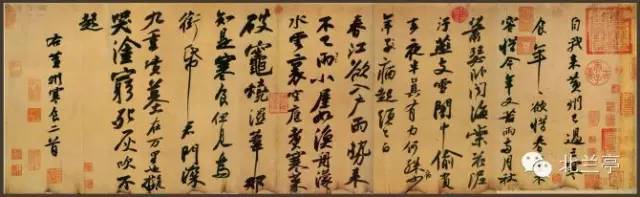 自我來黃州已過三寒
食年々欲惜春春去不
容惜今年又苦雨兩月秋
蕭瑟臥聞海棠花泥
汙燕支雪闇中偷負
去夜半真有力何殊少
年子病起須已白
春江欲入戶雨勢來
不已雨小屋如漁舟濛
水雲裏空庖煮寒菜
破竈燒濕葦那
知是寒食但見烏
銜帋君門深
九重墳墓在万里也擬
哭塗窮死灰吹不
起
右黃州寒食二首
北兰亭